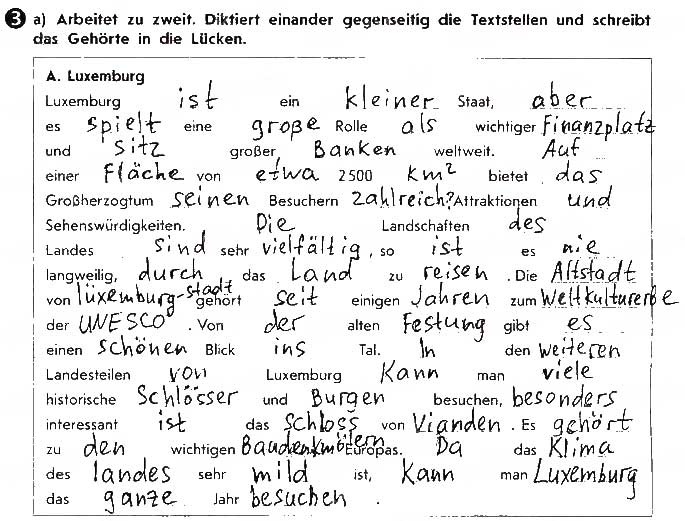 3 a) Arbeitet zu zweit. Diktiert einander gegenseitig die Textstellen und schreibt
das Gehörte in die Lücken.
A. Luxemburg
Luxemburg ist ein kleiner Staat, aber
es spielt eine große Rolle als wichtiger Finanzplatz
und Sitz großer Banken weltweit. Auf
einer Fläche von etwa 2500 km² bietet das
Großherzogtum seinen Besuchern zahlreich? Attraktionen und
Sehenswürdigkeiten. Die Landschaften des
Landes sind sehr vielfältig, so ist es nie
langweilig, durch das Land zu reisen. Die Altstadt
von lüxemburg-stadt gehört seit einigen Jahren zum Weltkulturerbe
der UNESCO. Von der alten Festung gibt es
einen schönen Blick ins Tal. In den weiteren
Landesteilen von Luxemburg kann man viele
historische Schlösser und Burgen besuchen, besonders
interessant ist das Schloss von Vianden. Es gehört
zu den wichtigen Baudenkmälern Europas. Da das Klima
des landes sehr mild ist, kann man Luxemburg
das ganze Jahr besuchen.